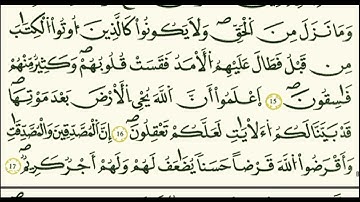 وَمَا نَزَلَ مِنَ ٱلْحَقِّ ۙ وَلَا يَكُونُوا۟ كَٱلَّذِينَ أُوتُوا۟ ٱلْكِتَٰبَ
مِن قَبْلُ فَطَالَ عَلَيْهِمُ ٱلْأَمَدُ فَقَسَتْ قُلُوبُهُمْ ۖ وَكَثِيرٌ مِّنْهُمْ
فَٰسِقُونَ 15 ٱعْلَمُوٓا۟ أَنَّ ٱللَّهَ يُحْىِ ٱلْأَرْضَ بَعْدَ مَوْتِهَا ۖ
قَدْ بَيَّنَّا لَكُمُ ٱلْءَايَٰتِ لَعَلَّكُمْ تَعْقِلُونَ 16 إِنَّ ٱلْمُصَّدِّقِينَ وَٱلْمُصَّدِّقَٰتِ
وَأَقْرَضُوا۟ ٱللَّهَ قَرْضًا حَسَنًا يُضَٰعَفُ لَهُمْ وَلَهُمْ أَجْرٌ كَرِيمٌ 17